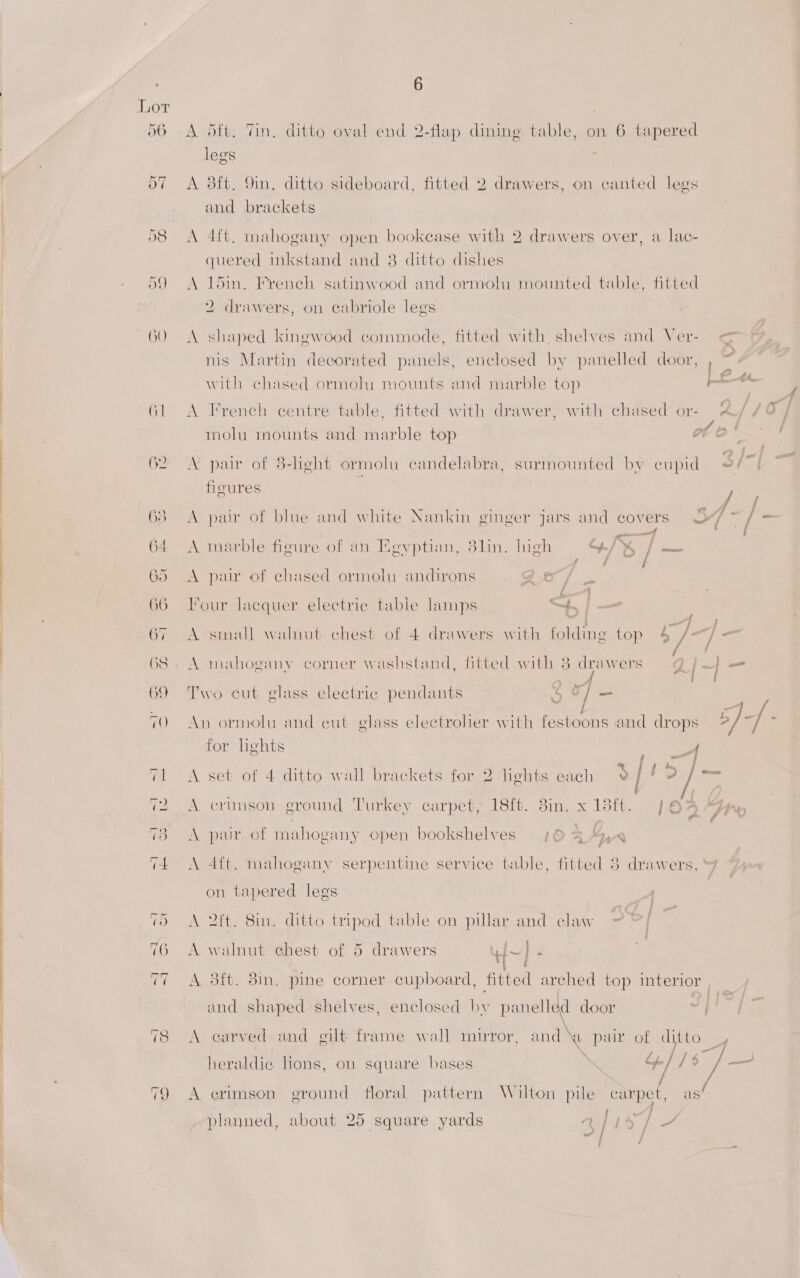 6
Lot
56 A 5ft. 7in. ditto oval end 2-flap dining table, on 6 tapered
legs
57 A 3ft. 9in. ditto sideboard, fitted 2 drawers, on canted legs
and brackets
58 A 4ft. mahogany open bookcase with 2 drawers over, a lac-
quered inkstand and 3 ditto dishes
59 A 15in. French satinwood and ormolu mounted table, fitted
2 drawers, on cabriole legs
60 A shaped kingwood commode, fitted with shelves and Ver-
nis Martin decorated panels, enclosed by panelled door,
with chased ormolu mounts and marble top
61 A French centre table, fitted with drawer, with chased or- 2/10/
molu mounts and marble top
62 A pair of 3-light ormolu candelabra, surmounted by cupid 3/-/-
figures
63 A pair of blue and white Nankin ginger jars and covers
64 A marble figure of an Egyptian, 31in. high
65 A pair of chased ormolu andirons
66 Four lacquer electric table lamps
67 A small walnut chest of 4 drawers with folding top
68 A mahogany corner washstand, fitted with 3 drawers
69 Two cut glass electric pendants
70 An ormolu and cut glass electrolier with festoons and drops
for lights
71 A set of 4 ditto wall brackets for 2 lights each
72 A crimson ground Turkey carpet, 18ft. 3in. x 13ft.
73 A pair of mahogany open bookshelves
74 A 4ft. mahogany serpentine service table, fitted 3 drawers,
on tapered legs
75 A 2ft. 8in. ditto tripod table on pillar and claw
76 A walnut chest of 5 drawers 4/-/-
77 A 3ft. 3in. pine corner cupboard, fitted arched top interior
and shaped shelves, enclosed by panelled door
78 A carved and gilt frame wall mirror, and a pair of ditto
heraldic lions, on square bases
79 A crimson ground floral pattern Wilton pile carpet, as
planned, about 25 square yards